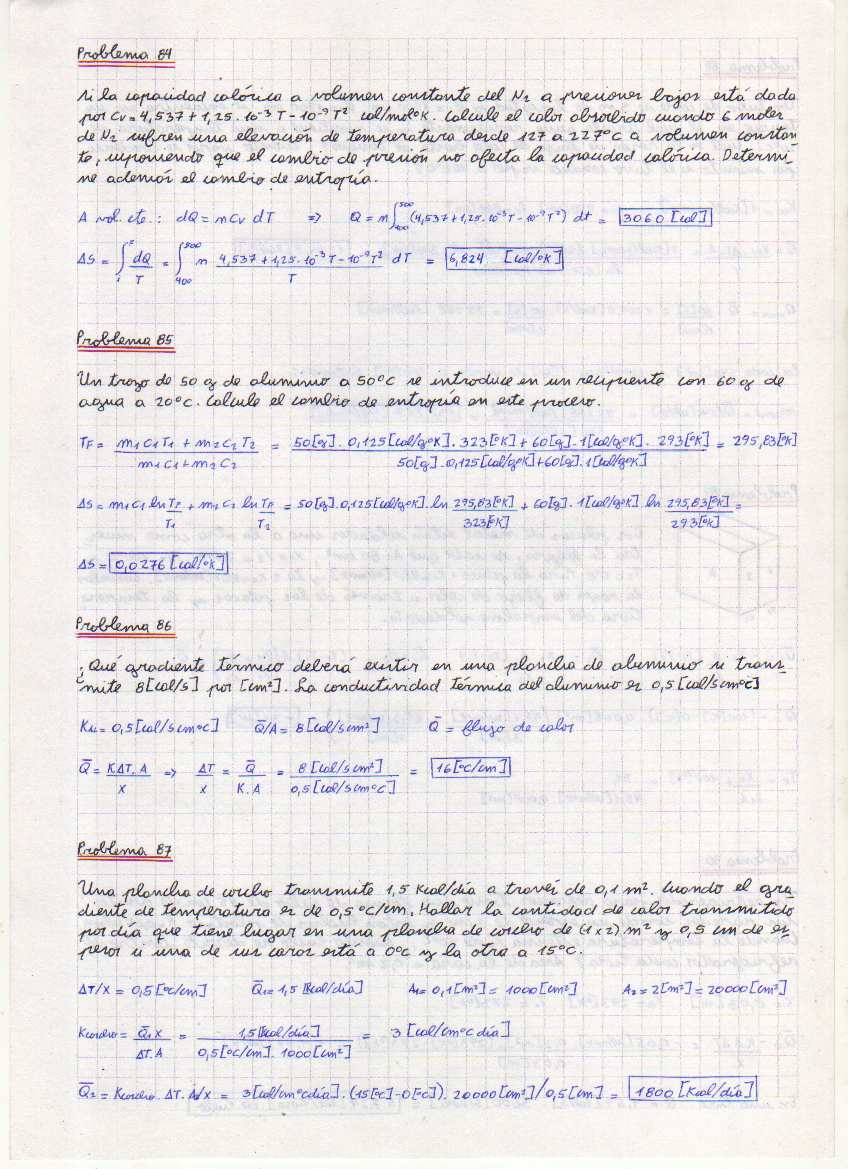 Problema 84
Si la capacidad calórica a volumen constante del N₂ a presiones bajas está dada
por Cv = 4,537 + 1,25 . 10⁻³ T - 10⁻⁹ T² cal/mol°K. Calcule el calor absorbido cuando 6 moles
de N₂ sufren una elevación de temperatura desde 127 a 227°C a volumen constan-
te, suponiendo que el cambio de presión no afecta la capacidad calórica. Determi-
ne además el cambio de entropía.
A vol. cte. : dQ = n Cv dT => Q = n ∫₄₀₀⁵⁰⁰ (4,537 + 1,25 . 10⁻³ T - 10⁻⁹ T²) dt = 3060 [cal]
ΔS = ∫ᵢᶠ dQ/T = ∫₄₀₀⁵⁰⁰ n (4,537 + 1,25 . 10⁻³ T - 10⁻⁹ T²)/T dT = 6,824 [cal/°K]
Problema 85
Un trozo de 50 g de aluminio a 50°C se introduce en un recipiente con 60 g de
agua a 20°C. Calcule el cambio de entropía en este proceso.
TF = (m₁ c₁ T₁ + m₂ c₂ T₂)/(m₁ c₁ + m₂ c₂) = (50[g] . 0,125[cal/g°K] . 323[°K] + 60[g] . 1[cal/g°K] . 293[°K])/(50[g] . 0,125[cal/g°K] + 60[g] . 1[cal/g°K]) = 295,83[°K]
ΔS = m₁ c₁ ln TF/T₁ + m₂ c₂ ln TF/T₂ = 50[g] . 0,125[cal/g°K] . ln 295,83[°K]/323[°K] + 60[g] . 1[cal/g°K] ln 295,83[°K]/293[°K] =
ΔS = 0,0276 [cal/°K]
Problema 86
¿Qué gradiente térmico deberá existir en una plancha de aluminio si trans-
mite 8[cal/s] por [cm²]. La conductividad térmica del aluminio es 0,5 [cal/s cm°C]
KAL = 0,5 [cal/s cm°C] Q̄/A = 8 [cal/s cm²] Q̄ = flujo de calor
Q̄ = K ΔT . A/x => ΔT/x = Q̄/K . A = 8 [cal/s cm²]/0,5 [cal/s cm°C] = 16 [°C/cm]
Problema 87
Una plancha de corcho transmite 1,5 Kcal/día a través de 0,1 m². Cuando el gra-
diente de temperatura es de 0,5 °C/cm. Hallar la cantidad de calor transmitido
por día que tiene lugar en una plancha de corcho de (1 x 2) m² y 0,5 cm de es-
pesor si una de sus caras está a 0°C y la otra a 15°C.
ΔT/x = 0,5 [°C/cm] Q̄₁ = 1,5 [Kcal/día] A₁ = 0,1 [m²] = 1000 [cm²] A₂ = 2 [m²] = 20000 [cm²]
Kcorcho = Q̄₁ x/ΔT . A = 1,5 [Kcal/día]/0,5 [°C/cm] . 1000 [cm²] = 3 [cal/cm°C día]
Q̄₂ = Kcorcho . ΔT . A₂/x = 3 [cal/cm°C día] . (15 [°C] - 0 [°C]) . 20000 [cm²] / 0,5 [cm] = 1800 [Kcal/día]